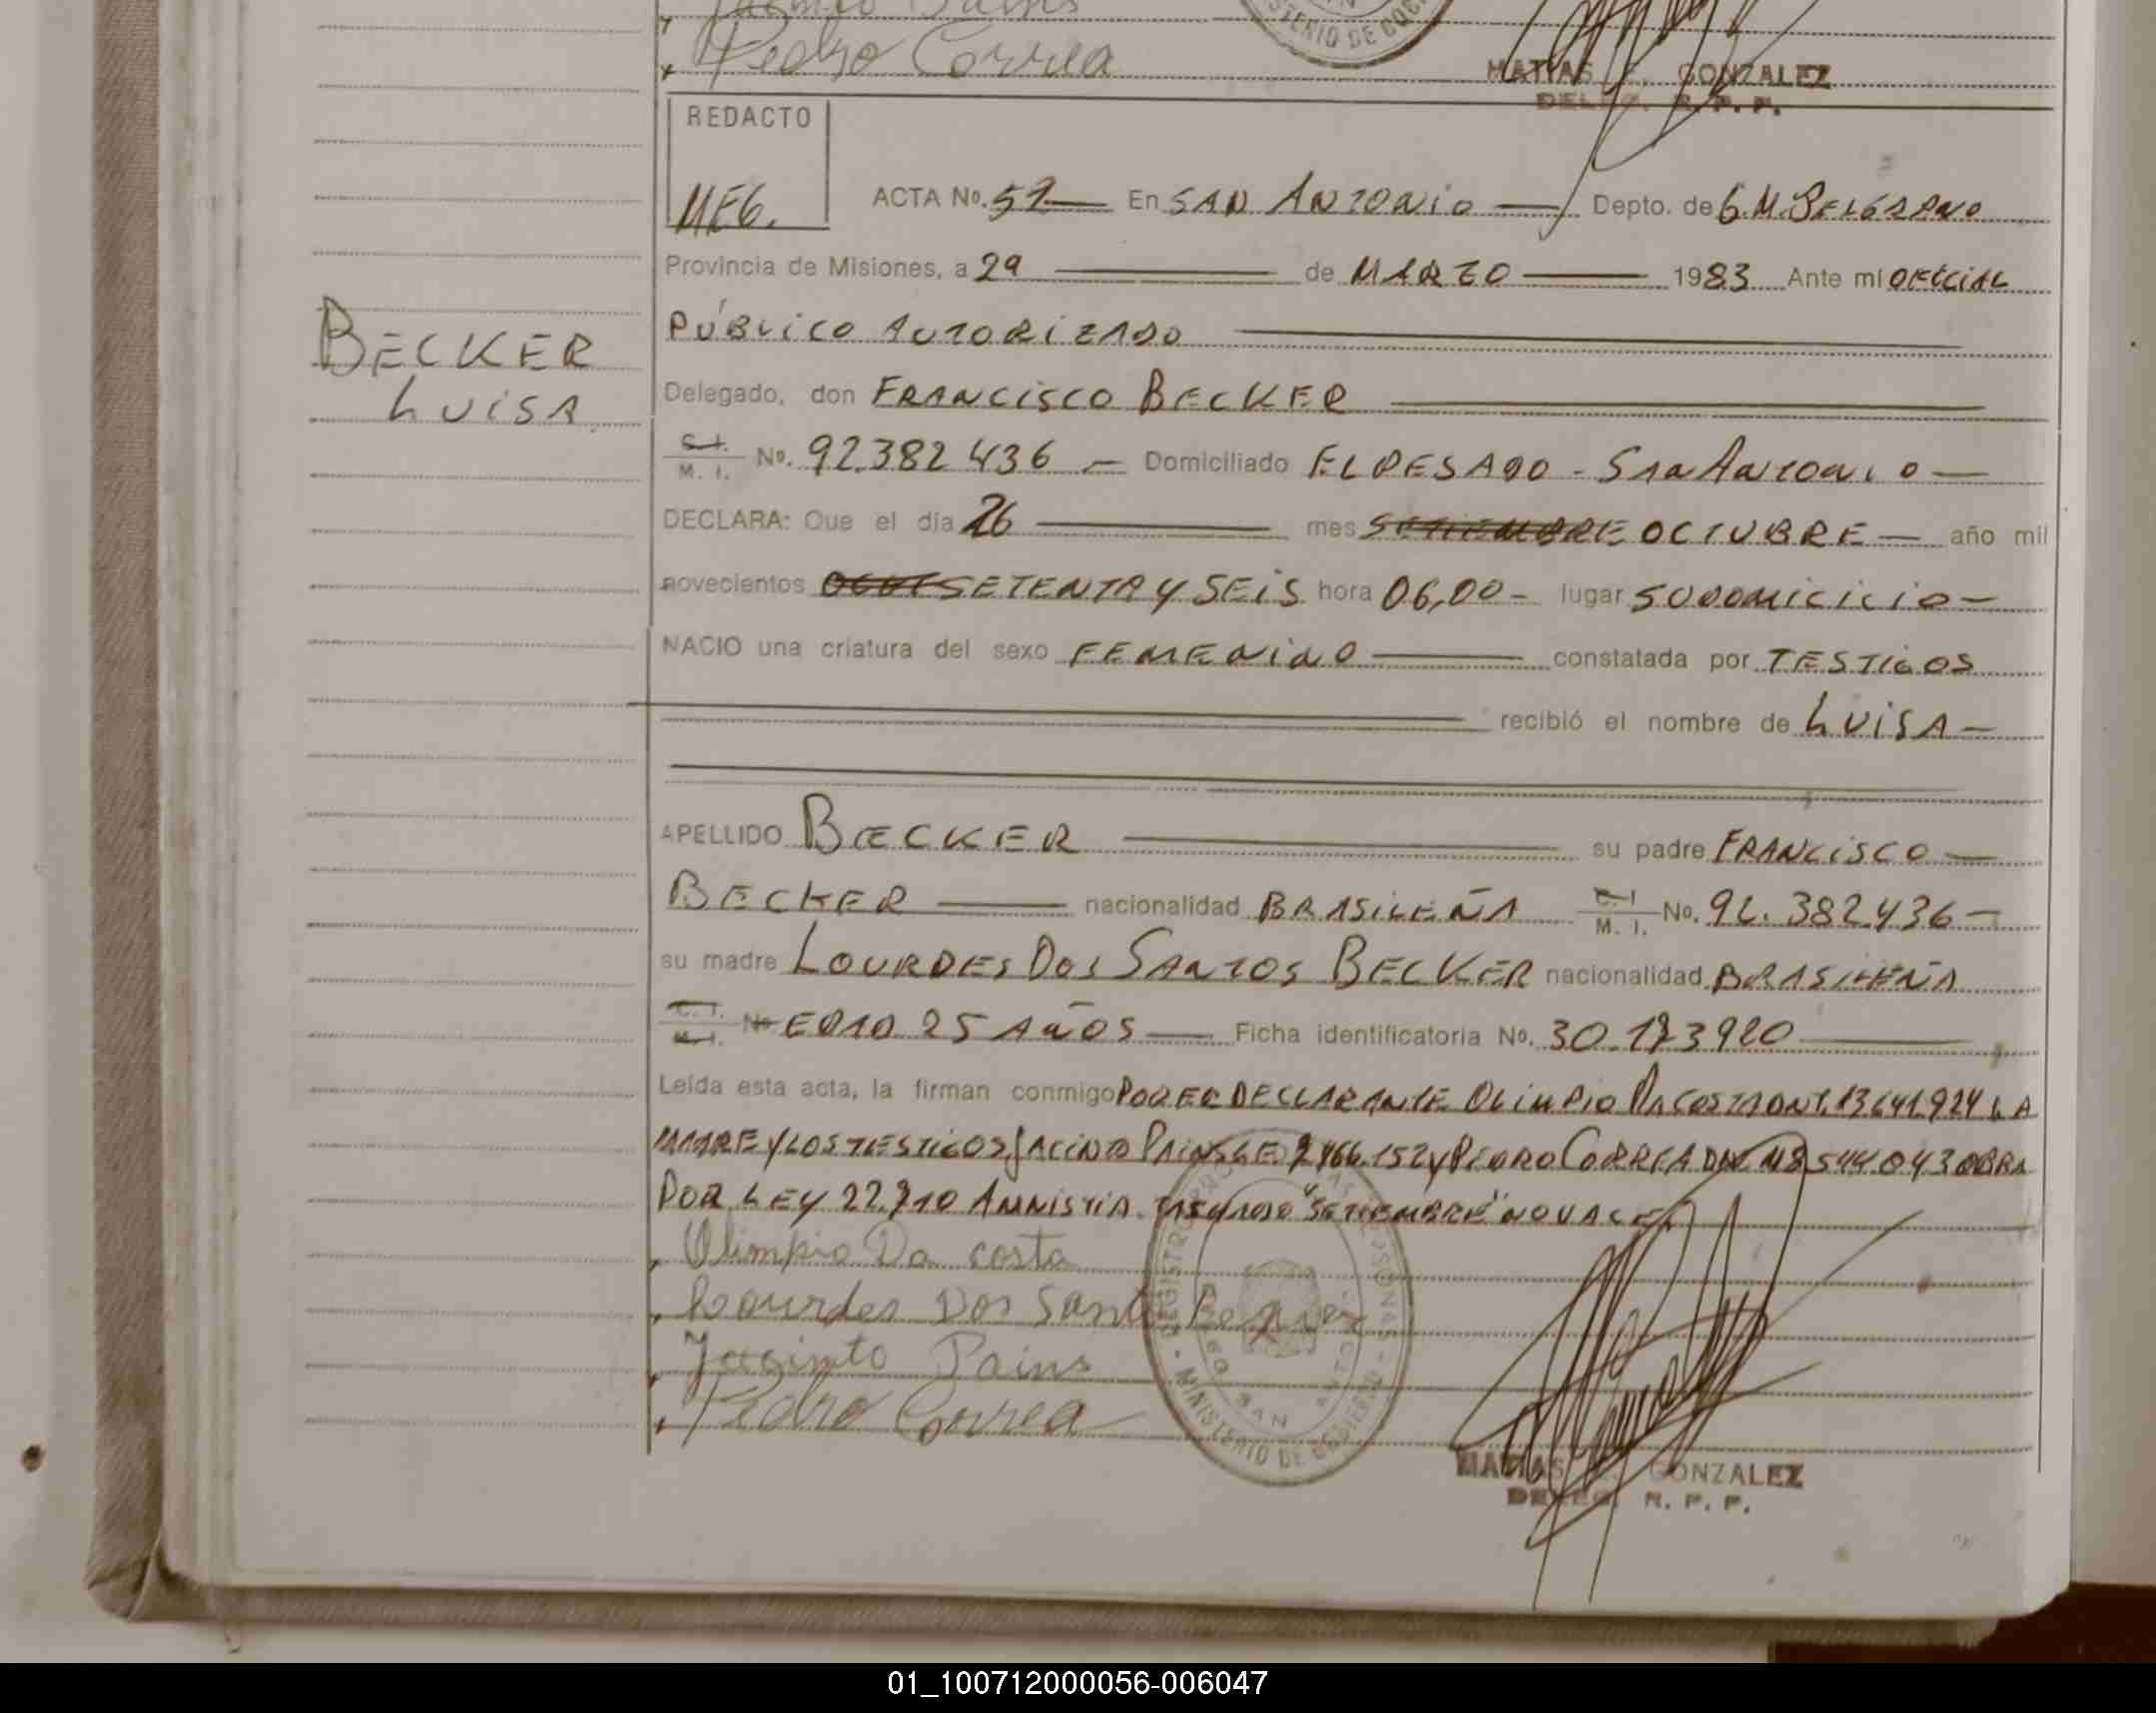 Pedro Correa
MINISTERIO DE GOB
MATIAS E. GONZALEZ
DELEG. R. P. P.
REDACTO
MEG.
ACTA No. 52 En SAN ANTONIO Depto. de G. M. BELGRANO
Provincia de Misiones, a 29 de MARZO 1983 Ante mi OFICIAL
PÚBLICO AUTORIZADO
BECKER
LUISA
Delegado, don FRANCISCO BECKER
C. I. / M. I. No. 92.382 436 - Domiciliado EL PESADO - SAN ANTONIO
DECLARA: Que el día 26 mes SETIEMBRE OCTUBRE año mil
novecientos SETENTA Y SEIS hora 06,00 - lugar SU DOMICICIO
NACIO una criatura del sexo FEMENINO constatada por TESTIGOS
recibió el nombre de LUISA
APELLIDO BECKER su padre FRANCISCO
BECKER nacionalidad BRASILEÑA C. I / M. I. No. 92. 382.436
su madre LOURDES DOS SANTOS BECKER nacionalidad BRASILEÑA
C. I. / M. I. No EDAD 25 AÑOS Ficha identificatoria No. 30.173920
Leída esta acta, la firman conmigo POR EL DECLARANTE OLIMPIO DA COSTA DNI. 13641924 LA
MADRE Y LOS TESTIGOS JACINTO PAINS LE 2466.152 y PEDRO CORREA DNI 18544043 OBRA
POR LEY 22.710 AMNISTIA. TESTADO "SETIEMBRE" NO VALE
Olimpio Da costa
Lourdes Dos Santo Beques
Jaginto Pains
Pedro Correa
MINISTERIO DE GOBIERNO
SAN ANTONIO
MATIAS E. GONZALEZ
DELEG. R. P. P.
01_100712000056-006047